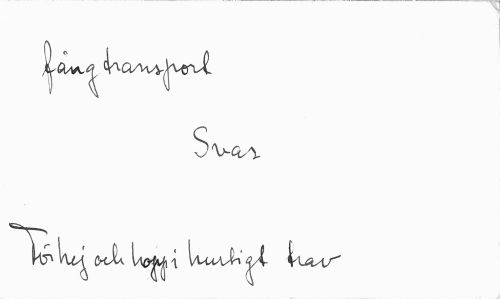 fångtransport
Svar
Töihej och hopp i hurtigt trav